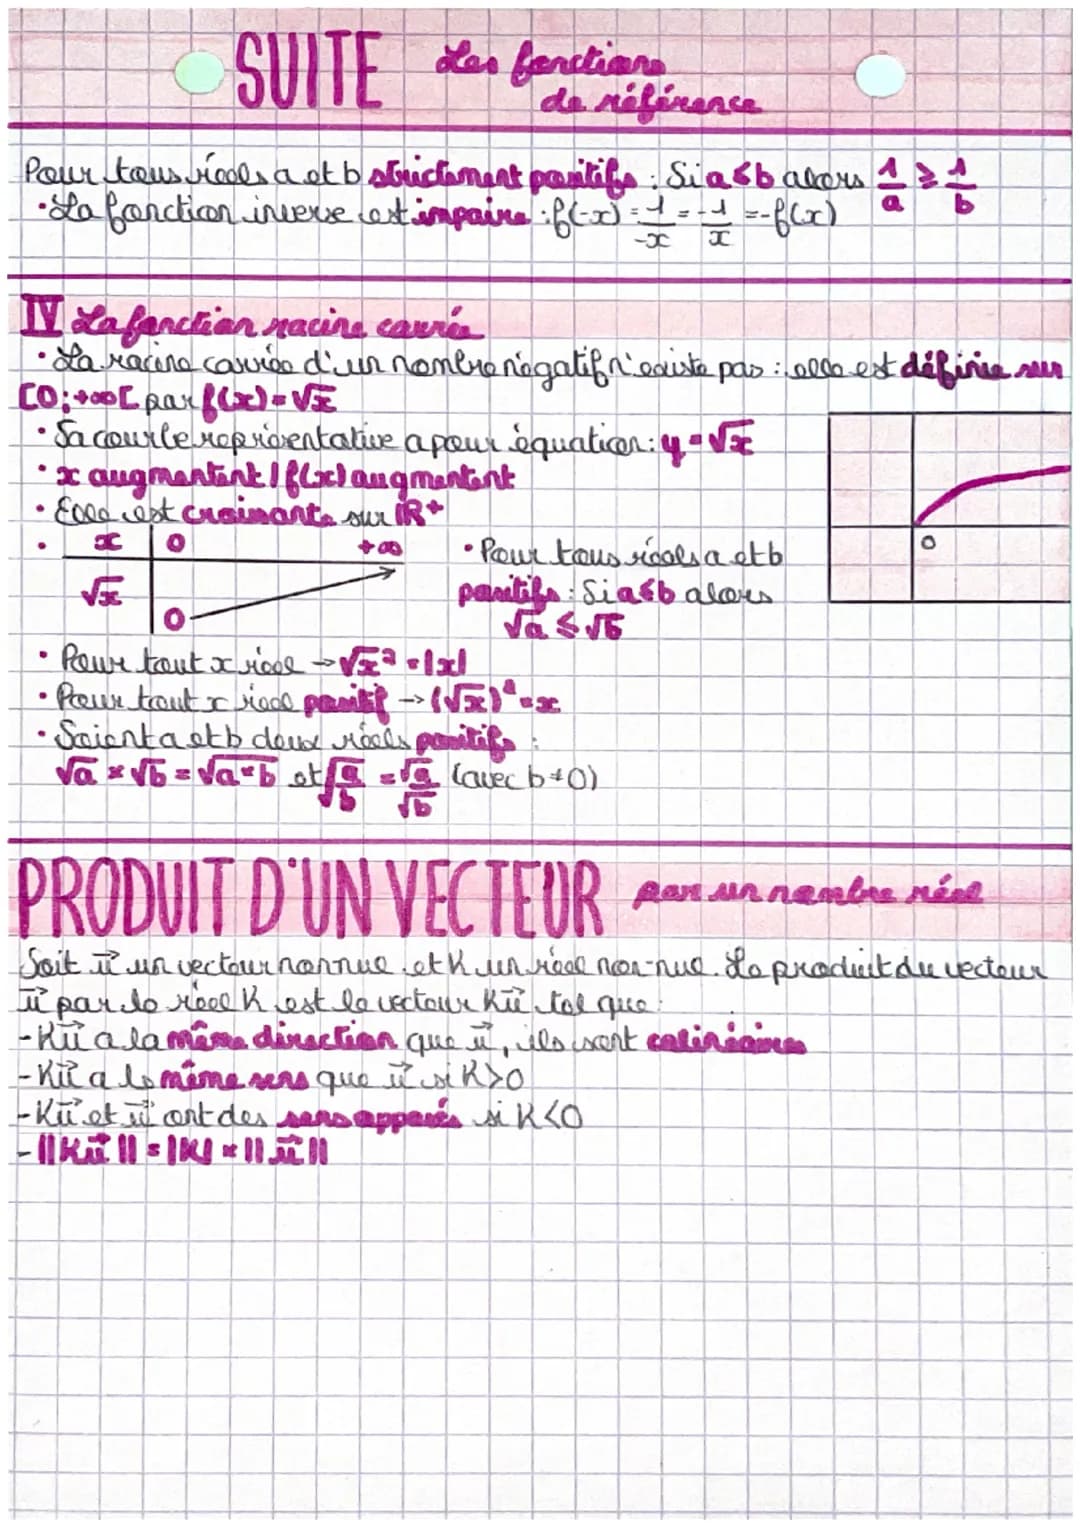 SUITE Les fonctions
de référence
Pour tous réels a et b strictement positifs : Si a ≤ b alors 1/a ≥ 1/b
• La fonction inverse est impaire : f(-x) = 1/-x = -1/x = -f(x)
IV La fonction racine carrée
• La racine carrée d'un nombre négatif n'existe pas : elle est définie sur
[0;+∞[ par f(x) = √x
• Sa courbe représentative a pour équation : y = √x
• x augmentent / f(x) augmentent
• Elle est croissante sur ℝ+
• x 0 +∞
√x 0
0
• Pour tous réels a et b
positifs : Si a ≤ b alors
√a ≤ √b
• Pour tout x réel → √x² = |x|
• Pour tout x réel positif → (√x)² = x
• Soient a et b deux réels positifs :
√a × √b = √a×b et √a/b = √a/√b (avec b ≠ 0)
PRODUIT D'UN VECTEUR par un nombre réel
Soit u⃗ un vecteur non nul et K un réel non-nul. Le produit du vecteur
u⃗ par le réel K est le vecteur Ku⃗ tel que :
- Ku⃗ a la même direction que u⃗, ils sont colinéaires
- Ku⃗ a le même sens que u⃗ si K>0
- Ku⃗ et u⃗ ont des sens opposés si K<0
- ||Ku⃗|| = |K| × ||u⃗||